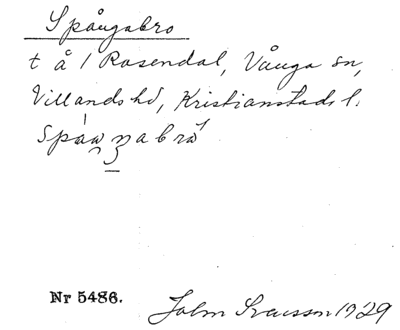 Spångabro
t å 1 Rosendal, Vånga sn,
Villands hd, Kristianstads l.
Nr 5486.
John Svensson 1929